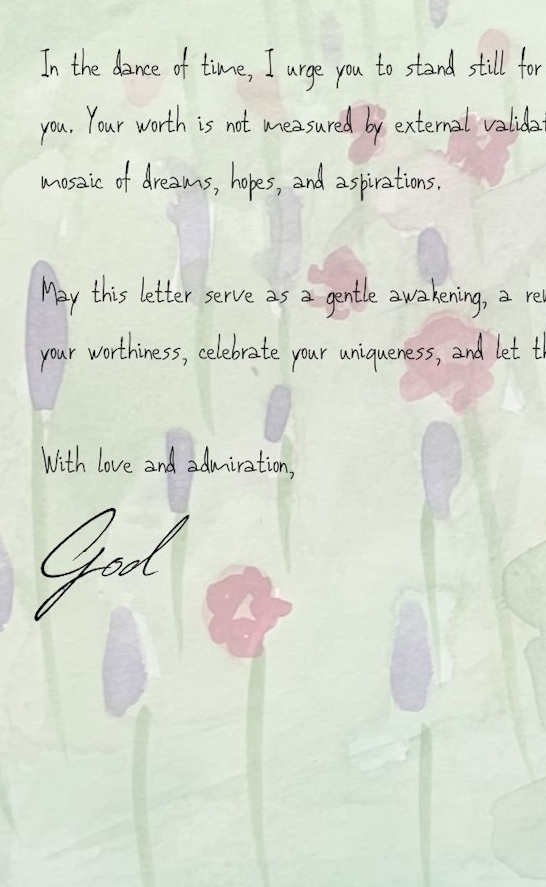 In the dance of time, I urge you to stand still for
you. Your worth is not measured by external
mosaic of dreams, hopes, and aspirations.
May this letter serve as a gentle awakening, a
your worthiness, celebrate your uniqueness, and let
With love and admiration,
God